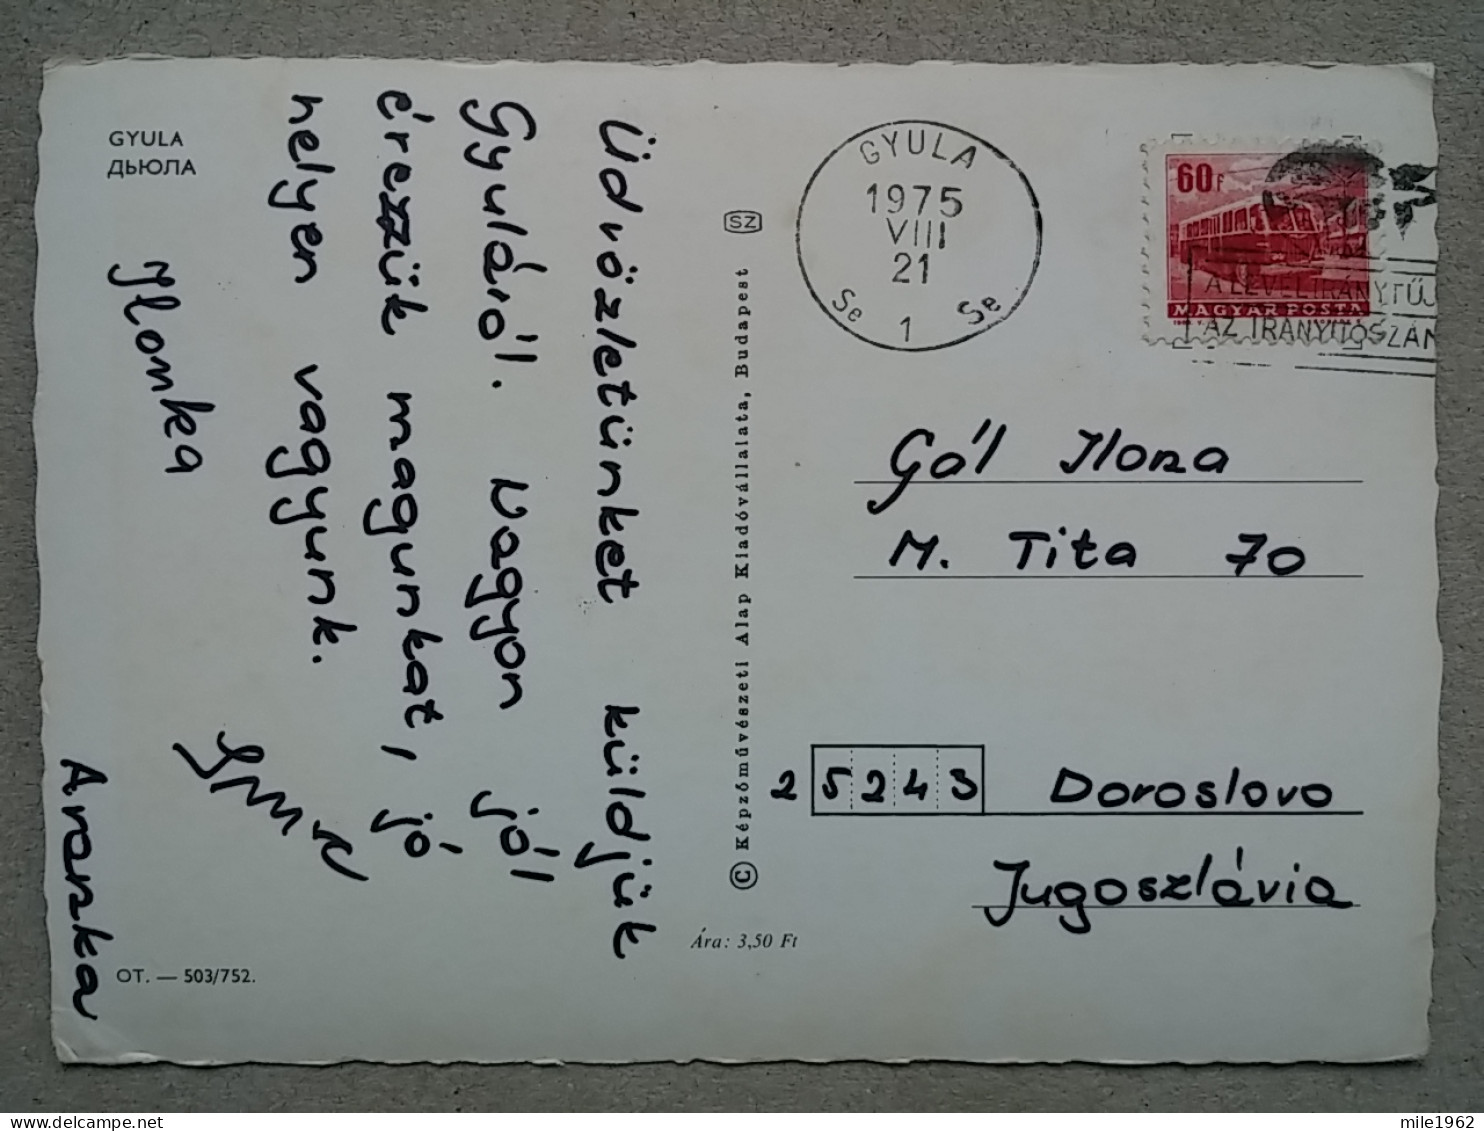 GYULA
ДЬЮЛА
Üdvözletünket küldjük
Gyuláról. Nagyon jól
érezzük magunkat, jó
helyen vagyunk.
Ilonka
Aranka
OT. — 503/752.
SZ
© Képzőművészeti Alap Kiadóvállalata, Budapest
Ára: 3,50 Ft
GYULA
1975
VIII
21
Se 1 Se
60 F
MAGYAR POSTA
A LEVEL IRÁNYTŰJ
AZ IRÁNYÍTÓSZÁM
Gál Ilona
M. Tita 70
25243 Doroslovo
Jugoszlávia
mile1962